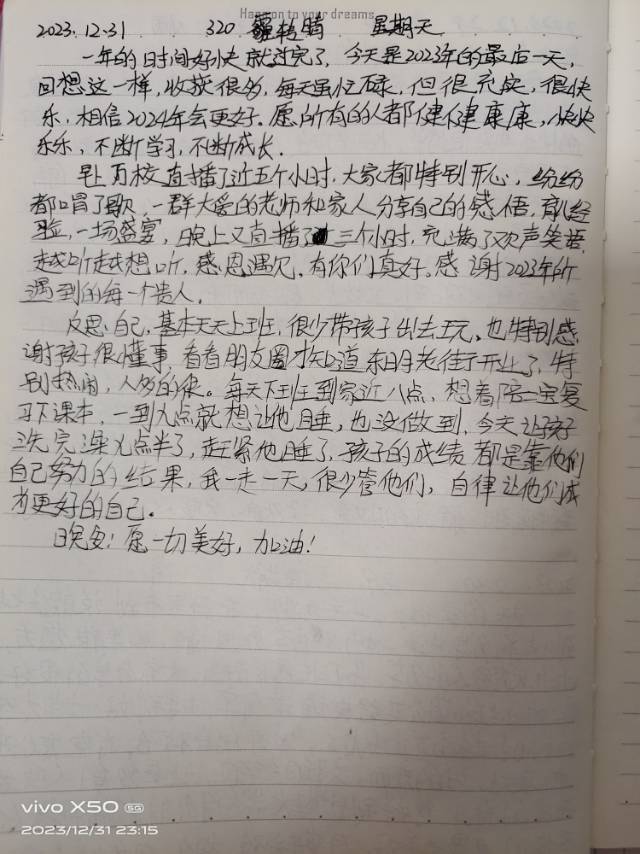 Happen to your dreams
2023.12.31 320 晴 星期天
一年的时间好快就过完了，今天是2023年的最后一天，
回想这一样，收获很多，每天虽忙碌，但很充实，很快
乐，相信2024年会更好。愿所有的人都健健康康，快快
乐乐，不断学习，不断成长。
早上万校直播了近五个小时，大家都特别开心，纷纷
都唱了歌，一群大爱的老师和家人分享自己的感悟，育儿经
验，一场盛宴，晚上又直播了三个小时，充满了欢声笑语，
越听越想听，感恩遇见，有你们真好。感谢2023年所
遇到的每一个贵人。
反思自己，基本天天上班，很少带孩子出去玩，也特别感
谢孩子很懂事，看看朋友圈才知道东明老街开业了，特
别热闹，人多的很。每天下班到家近八点，想着陪二宝复
习下课本，一到九点就想让他睡，也没做到，今天让孩子
洗完澡九点半了，赶紧他睡了，孩子的成绩都是靠他们
自己努力的结果，我一走一天，很少管他们，自律让他们成
为更好的自己。
晚安！愿一切美好，加油！
vivo X50 5G
2023/12/31 23:15